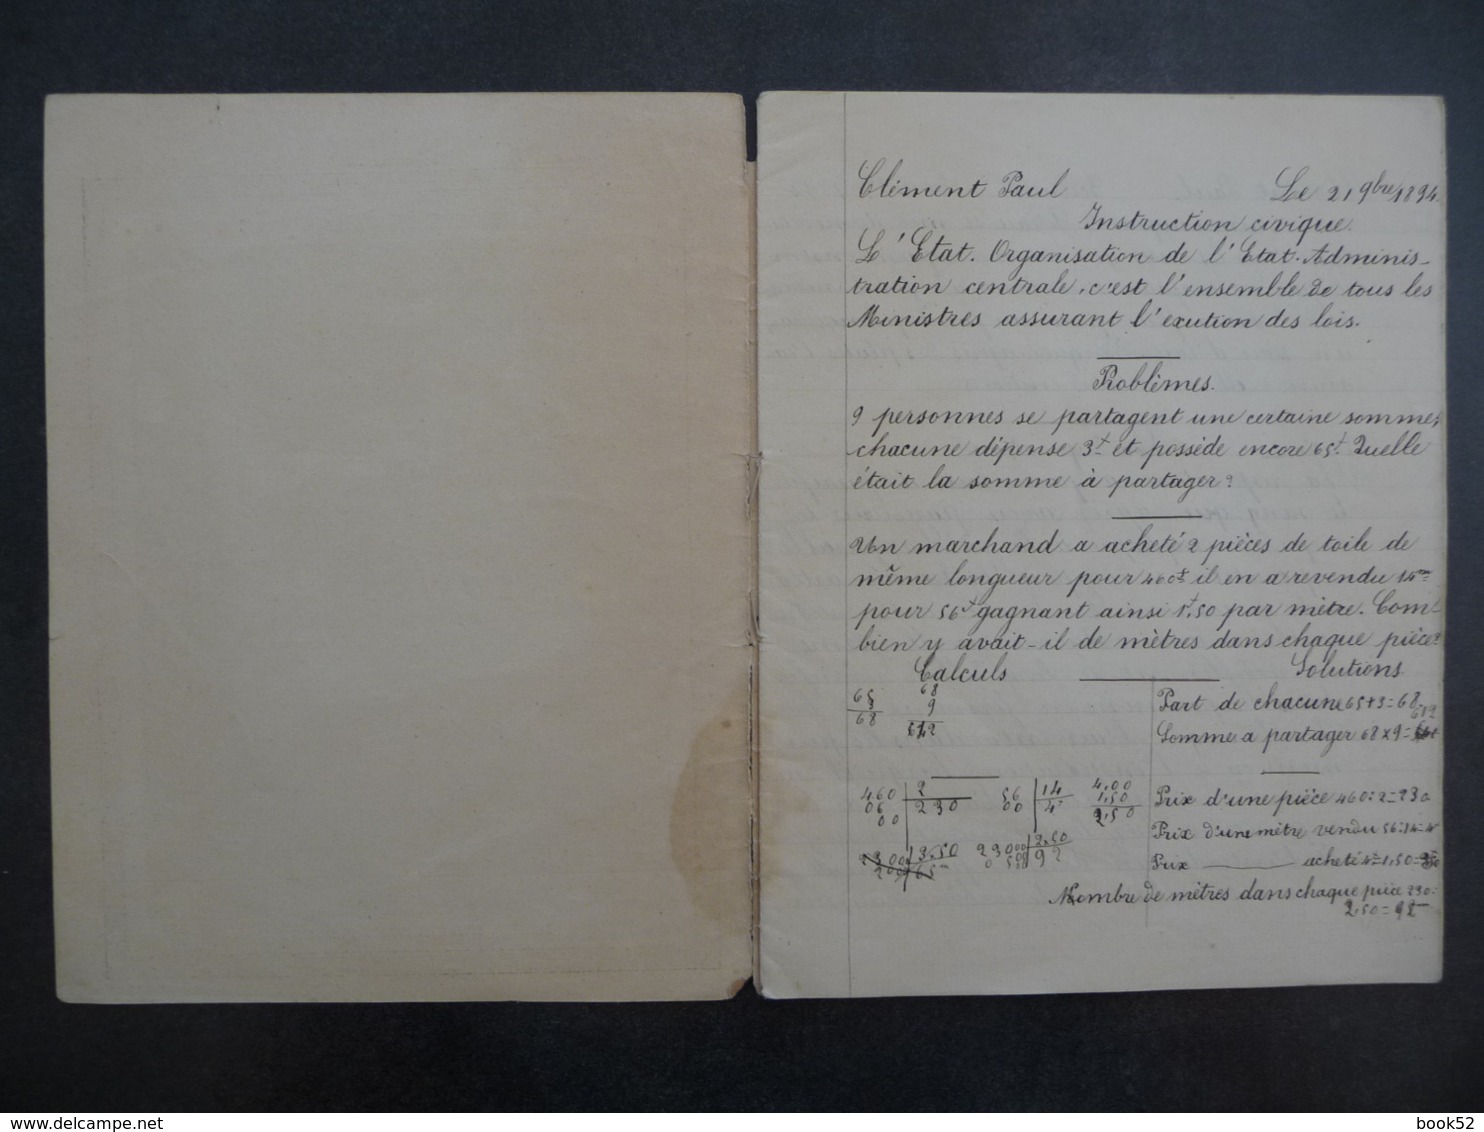 Clément Paul Le 21 9bre 1894
Instruction civique.
L'Etat. Organisation de l'Etat. Adminis-
tration centrale, c'est l'ensemble de tous les
Ministres assurant l'exution des lois.
Problèmes.
9 personnes se partagent une certaine somme,
chacune dépense 3f et possède encore 65f Quelle
était la somme à partager?
Un marchand a acheté 2 pièces de toile de
même longueur pour 460f il en a revendu 14m
pour 56f gagnant ainsi 1f,50 par mètre. Com-
bien y avait-il de mètres dans chaque pièce?
Calculs Solutions
65 68
3 9
68 612
Part de chacune 65+3=68
612
Somme a partager 68×9=
460 2 56 14 4,00
06 230 00 4 1,50
00 2,50
2300 3.50 23000 2.50
200 65 0 500 92
Prix d'une pièce 460:2=230
Prix d'une mètre vendu 56:14=4
Prix acheté 4-1,50=2,50
Nombre de mètres dans chaque pièce 230:
2,50=92m
delcampe.net
book52